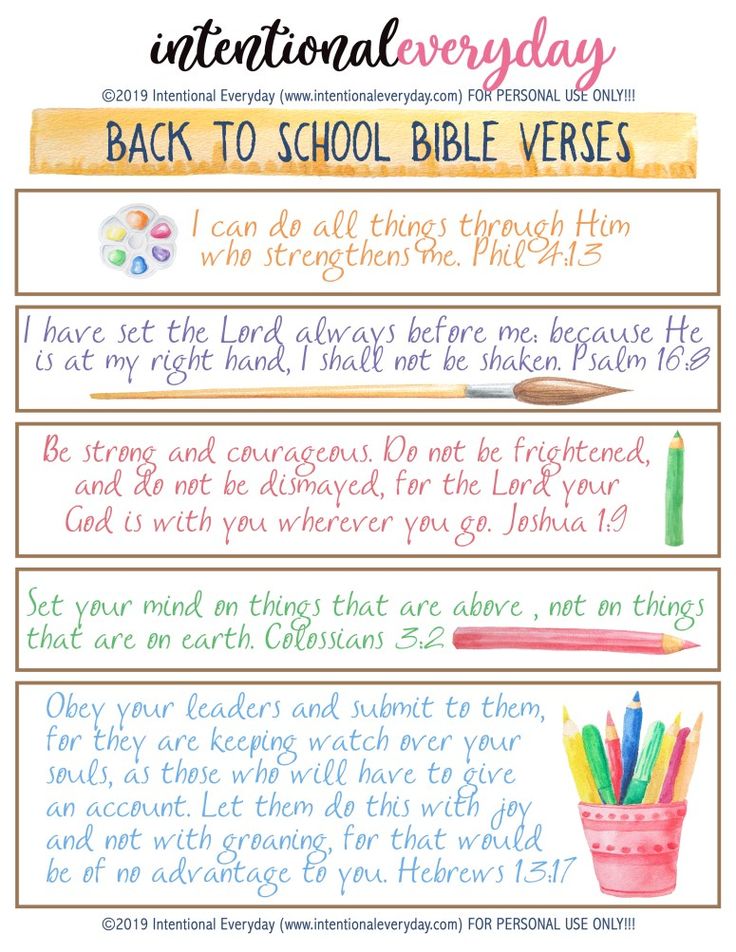 intentionaleveryday
©2019 Intentional Everyday (www.intentionaleveryday.com) FOR PERSONAL USE ONLY!!!
BACK TO SCHOOL BIBLE VERSES
I can do all things through Him
who strengthens me. Phil 4:13
I have set the Lord always before me: because He
is at my right hand, I shall not be shaken. Psalm 16:8
Be strong and courageous. Do not be frightened,
and do not be dismayed, for the Lord your
God is with you wherever you go. Joshua 1:9
Set your mind on things that are above , not on things
that are on earth. Colossians 3:2
Obey your leaders and submit to them,
for they are keeping watch over your
souls, as those who will have to give
an account. Let them do this with joy
and not with groaning, for that would
be of no advantage to you. Hebrews 13:17
©2019 Intentional Everyday (www.intentionaleveryday.com) FOR PERSONAL USE ONLY!!!